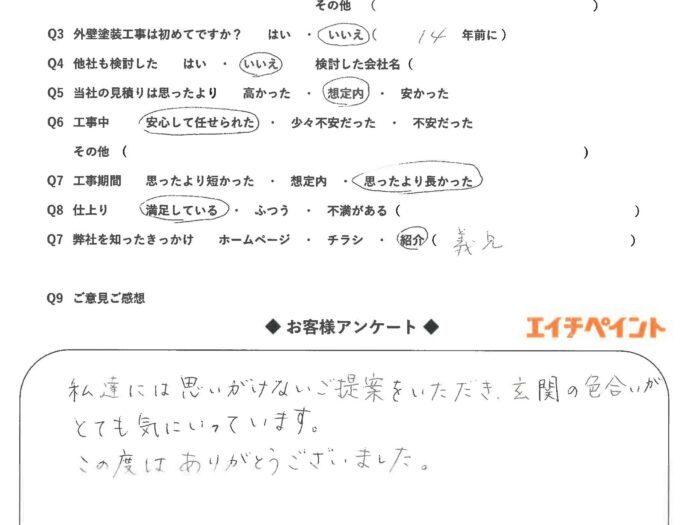 その他 （ ）
Q3 外壁塗装工事は初めてですか？ はい ・ いいえ（ 14 年前に ）
Q4 他社も検討した はい ・ いいえ 検討した会社名（
Q5 当社の見積りは思ったより 高かった ・ 想定内 ・ 安かった
Q6 工事中 安心して任せられた ・ 少々不安だった ・ 不安だった
その他 （ ）
Q7 工事期間 思ったより短かった ・ 想定内 ・ 思ったより長かった
Q8 仕上り 満足している ・ ふつう ・ 不満がある（ ）
Q7 弊社を知ったきっかけ ホームページ ・ チラシ ・ 紹介（ 義兄 ）
Q9 ご意見ご感想
◆ お客様アンケート ◆ エイチペイント
私達には思いがけないご提案をいただき、玄関の色合いが
とても気にいっています。
この度はありがとうございました。